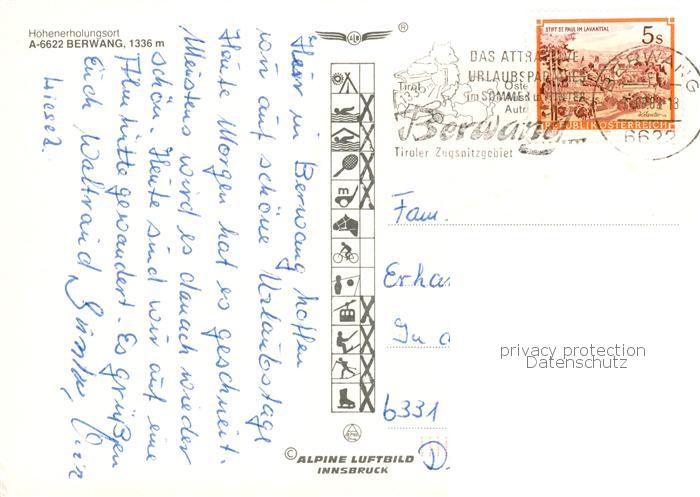 Höhenerholungsort
A-6622 BERWANG, 1336 m
Hier in Berwang hoffen
wir auf schöne Urlaubstage
Heute Morgen hat es geschneit.
Meistens wird es danach wieder
schön. Heute sind wir auf eine
Almhütte gewandert. Es grüßen
Euch Waltraud
Liesel
®
STIFT ST. PAUL IM LAVANTTAL
5s
REPUBLIK ÖSTERREICH
DAS ATTRAKTIVE
URLAUBSPARADIES
im SOMMER u. WINTER
Tirol
Berwang
Tiroler Zugspitzgebiet
BERWANG
6622
Fam.
Erha
In d
6331
D.
privacy protection
Datenschutz
© ALPINE LUFTBILD
INNSBRUCK